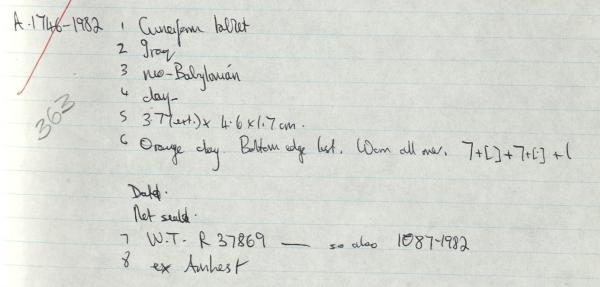 A.1746-1982 1 Cuneiform tablet
2 Iraq
3 neo-Babylonian
4 clay
5 3.7 (ext.) x 4.6 x 1.7 cm.
363
6 Orange clay. Bottom edge lost. Worn all over. 7+[]+7+[]+1
Dated.
Not sealed.
7 W.T. R 37869 — so also 1087-1982
8 ex Amherst